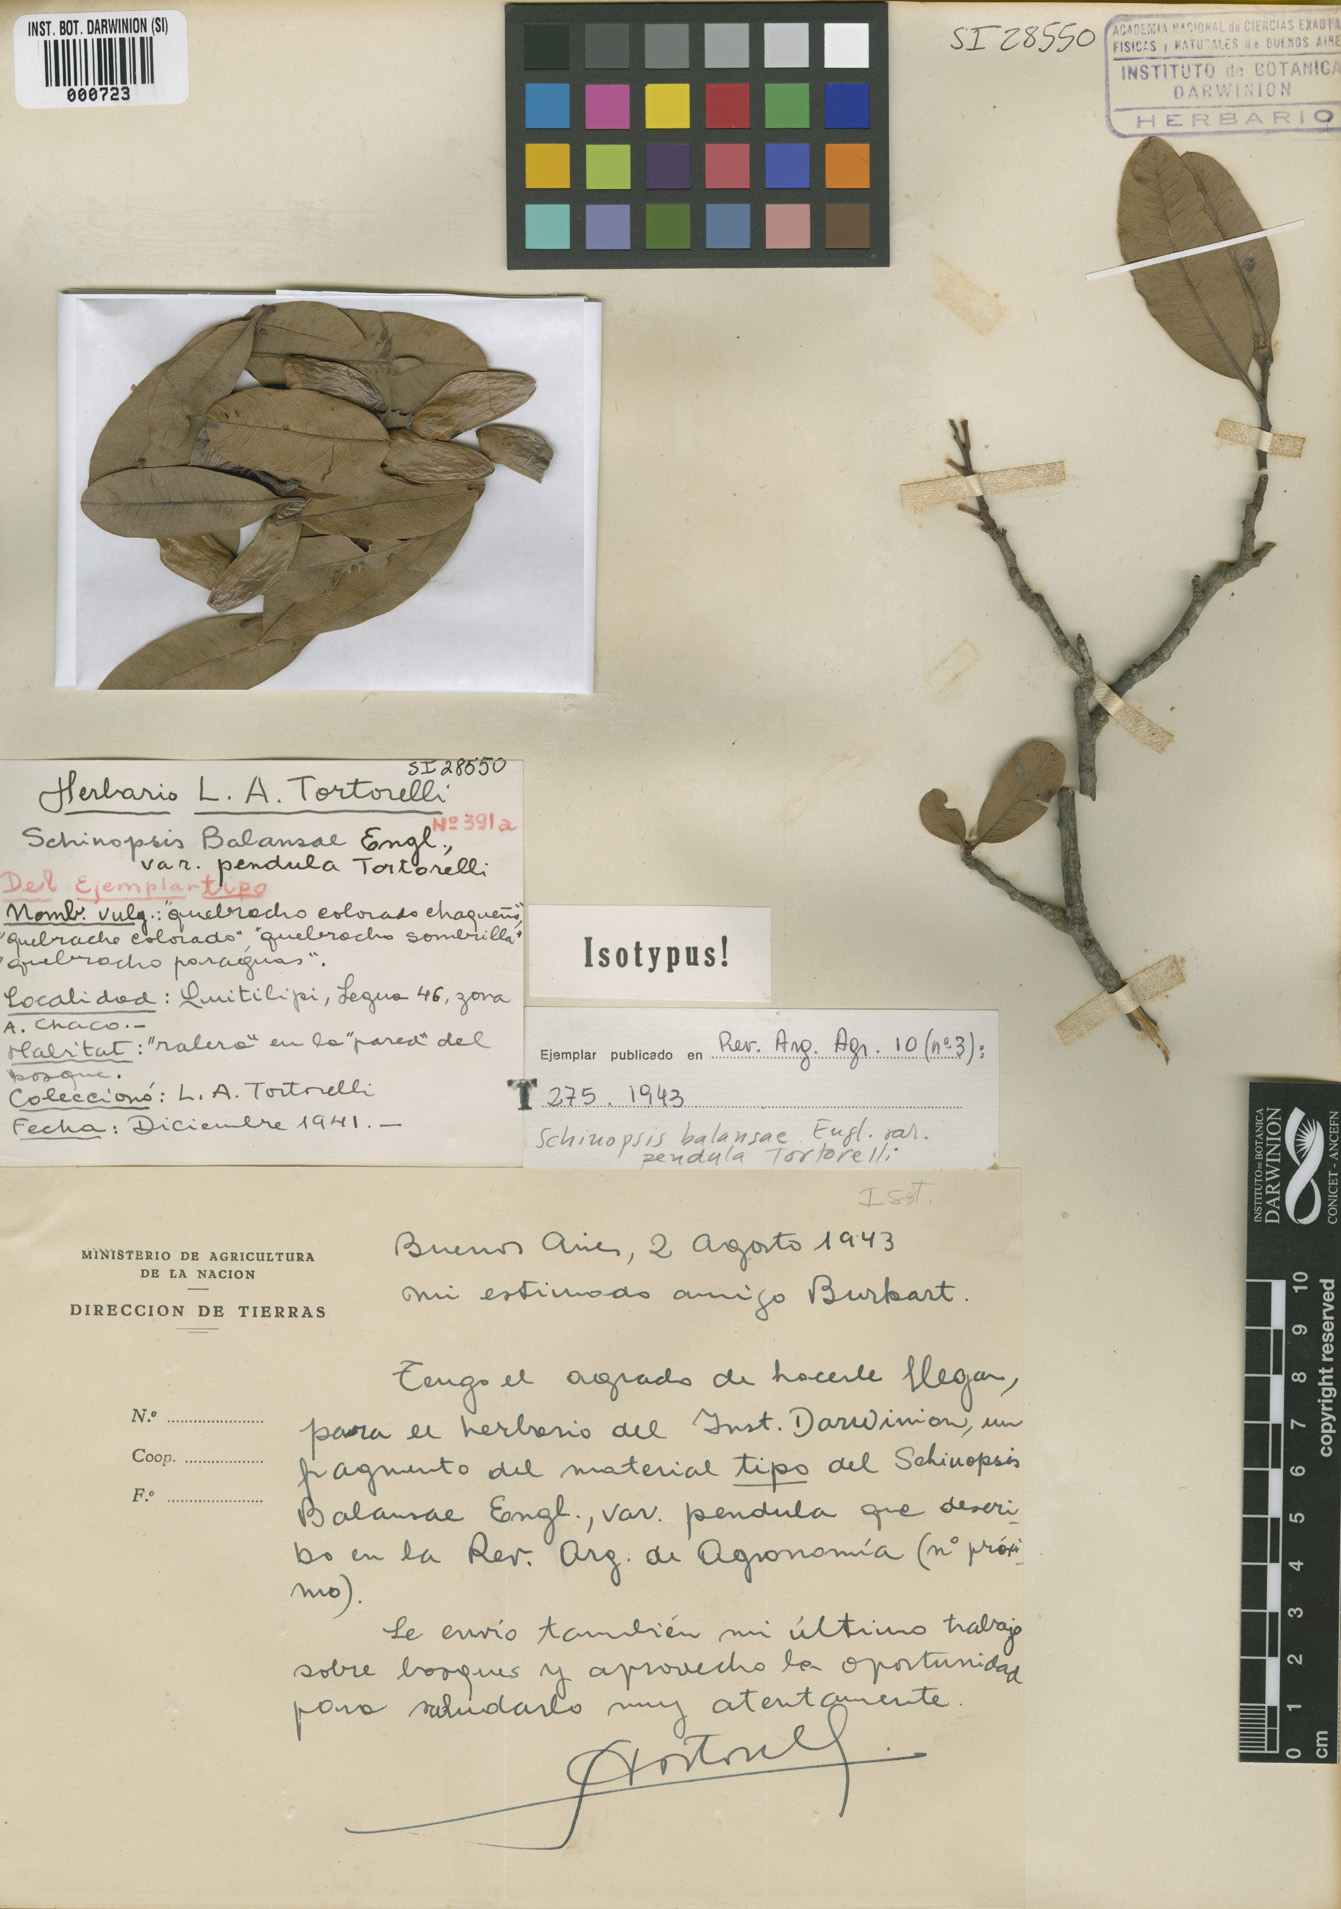 INST. BOT. DARWINION (SI)
000723
SI 28550
ACADEMIA NACIONAL de CIENCIAS EXACTA
FISICAS y NATURALES de BUENOS AIRE
INSTITUTO de BOTANICA
DARWINION
HERBARIO
SI 28550
Herbario L. A. Tortorelli
Nº 391a
Schinopsis Balansae Engl.,
var. pendula Tortorelli
Del Ejemplar tipo
Nomb. vulg.: "quebracho colorado chaqueño",
"quebracho colorado", "quebracho sombrilla"
"quebracho paraguas".
Localidad: Quitilipi, Legua 46, zona
A. Chaco.-
Habitat: "ralera" en la "pared" del
bosque.
Coleccionó: L. A. Tortorelli
Fecha: Diciembre 1941.-
Isotypus!
Ejemplar publicado en Rev. Arg. Agr. 10 (nº 3):
T 275. 1943
Schinopsis balansae Engl. var.
pendula Tortorelli
Isot.
MINISTERIO DE AGRICULTURA
DE LA NACION
DIRECCION DE TIERRAS
N.º
Coop.
F.º
Buenos Aires, 2 Agosto 1943
Mi estimado amigo Burkart.
Tengo el agrado de hacerle llegar,
para el herbario del Inst. Darwinion, un
fragmento del material tipo del Schinopsis
Balansae Engl., var. pendula que descri-
bo en la Rev. Arg. de Agronomía (nº próxi-
mo).
Le envío también mi último trabajo
sobre bosques y aprovecho la oportunidad
para saludarlo muy atentamente.
Tortorelli
INSTITUTO DE BOTANICA
DARWINION
CONICET - ANCEFN
10
9
8
7
6
5
4
3
2
1
0
cm
copyright reserved